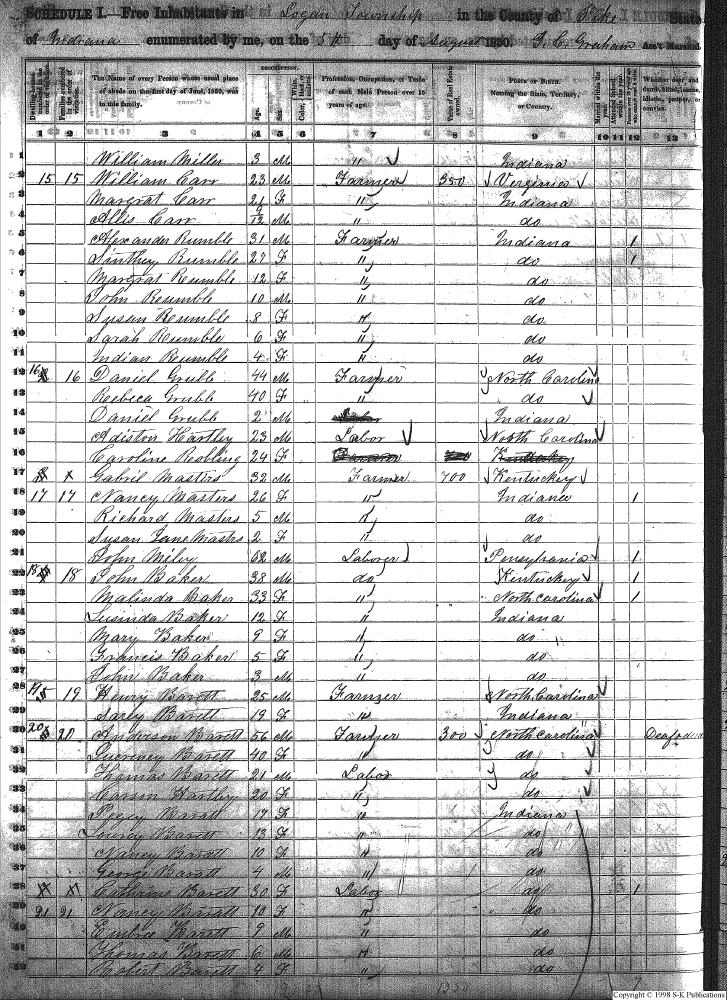 SCHEDULE I. Free Inhabitants in Logan Township in the County of Pike State
of Indiana enumerated by me, on the 5th day of August 1850. Ass't Marshal
The Name of every Person whose usual place of abode on the first day of June, 1850, was in this family.
DESCRIPTION.
Age. Sex. Color,
Profession, Occupation, or Trade of each Male Person over 15 years of age.
Value of Real Estate owned.
PLACE OF BIRTH. Naming the State, Territory, or Country.
Whether deaf and dumb, blind, insane, idiotic, pauper, or convict.
1 2 3 4 5 6 7 8 9 10 11 12 13
1 William Miller 3 M " Indiana
2 15 15 William Carr 23 M Farmer 350 Virginia
3 Margrat Carr 21 F " Indiana
4 Allis Carr 9/12 M " do
5 Alexander Rumble 31 M Farmer Indiana 1
6 Sinthey Rumble 27 F " do 1
7 Margrat Rumble 12 F " do
8 John Rumble 10 M " do
9 Susan Rumble 8 F " do
10 Sarah Rumble 6 F " do
11 Indian Rumble 4 F " do
12 16 16 Daniel Grubb 44 M Farmer North Carolina
13 Rebeca Grubb 40 F " do
14 Daniel Grubb 2 M Indiana
15 Adiston Hartley 23 M Labor North Carolina
16 Caroline Robling 24 F Kentucky
17 Gabril Masters 32 M Farmer 700 Kentucky
18 17 17 Nancy Masters 26 F " Indiana 1
19 Richard Masters 5 M " do
20 Susan Jane Masters 2 F " do
21 John Miley 62 M Laborer Pensylvania 1
22 18 18 John Baker 38 M do Kentucky 1
23 Malinda Baker 33 F " North Carolina 1
24 Lusinda Baker 12 F " Indiana
25 Mary Baker 9 F " do
26 Francis Baker 5 F " do
27 John Baker 3 M " do
28 19 19 Henry Barett 25 M Farmer North Carolina
29 Sarey Barett 19 F " Indiana
30 20 20 Anderson Barett 56 M Farmer 300 North Carolina Deaf
31 Barett 40 F " do
32 Thomas Barett 21 M Labor do
33 Hartley 20 F " do
34 Barett 17 F " Indiana
35 Barett 13 F " do
36 Nancy Barett 10 F " do
37 George Barett 4 M " do
38 Catharine Barett 30 F Labor do 1
39 21 21 Nancy Barett 10 F " do
40 Barett 9 M " do
41 Thomas Barett 6 M " do
42 Robert Barett 4 " do
Copyright © 1998 S-K Publications